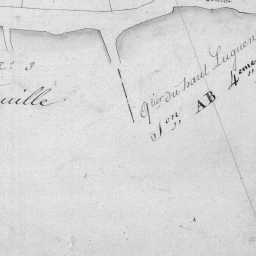 N° 3
euille
Qier du haut Luguen
Son AB 4eme